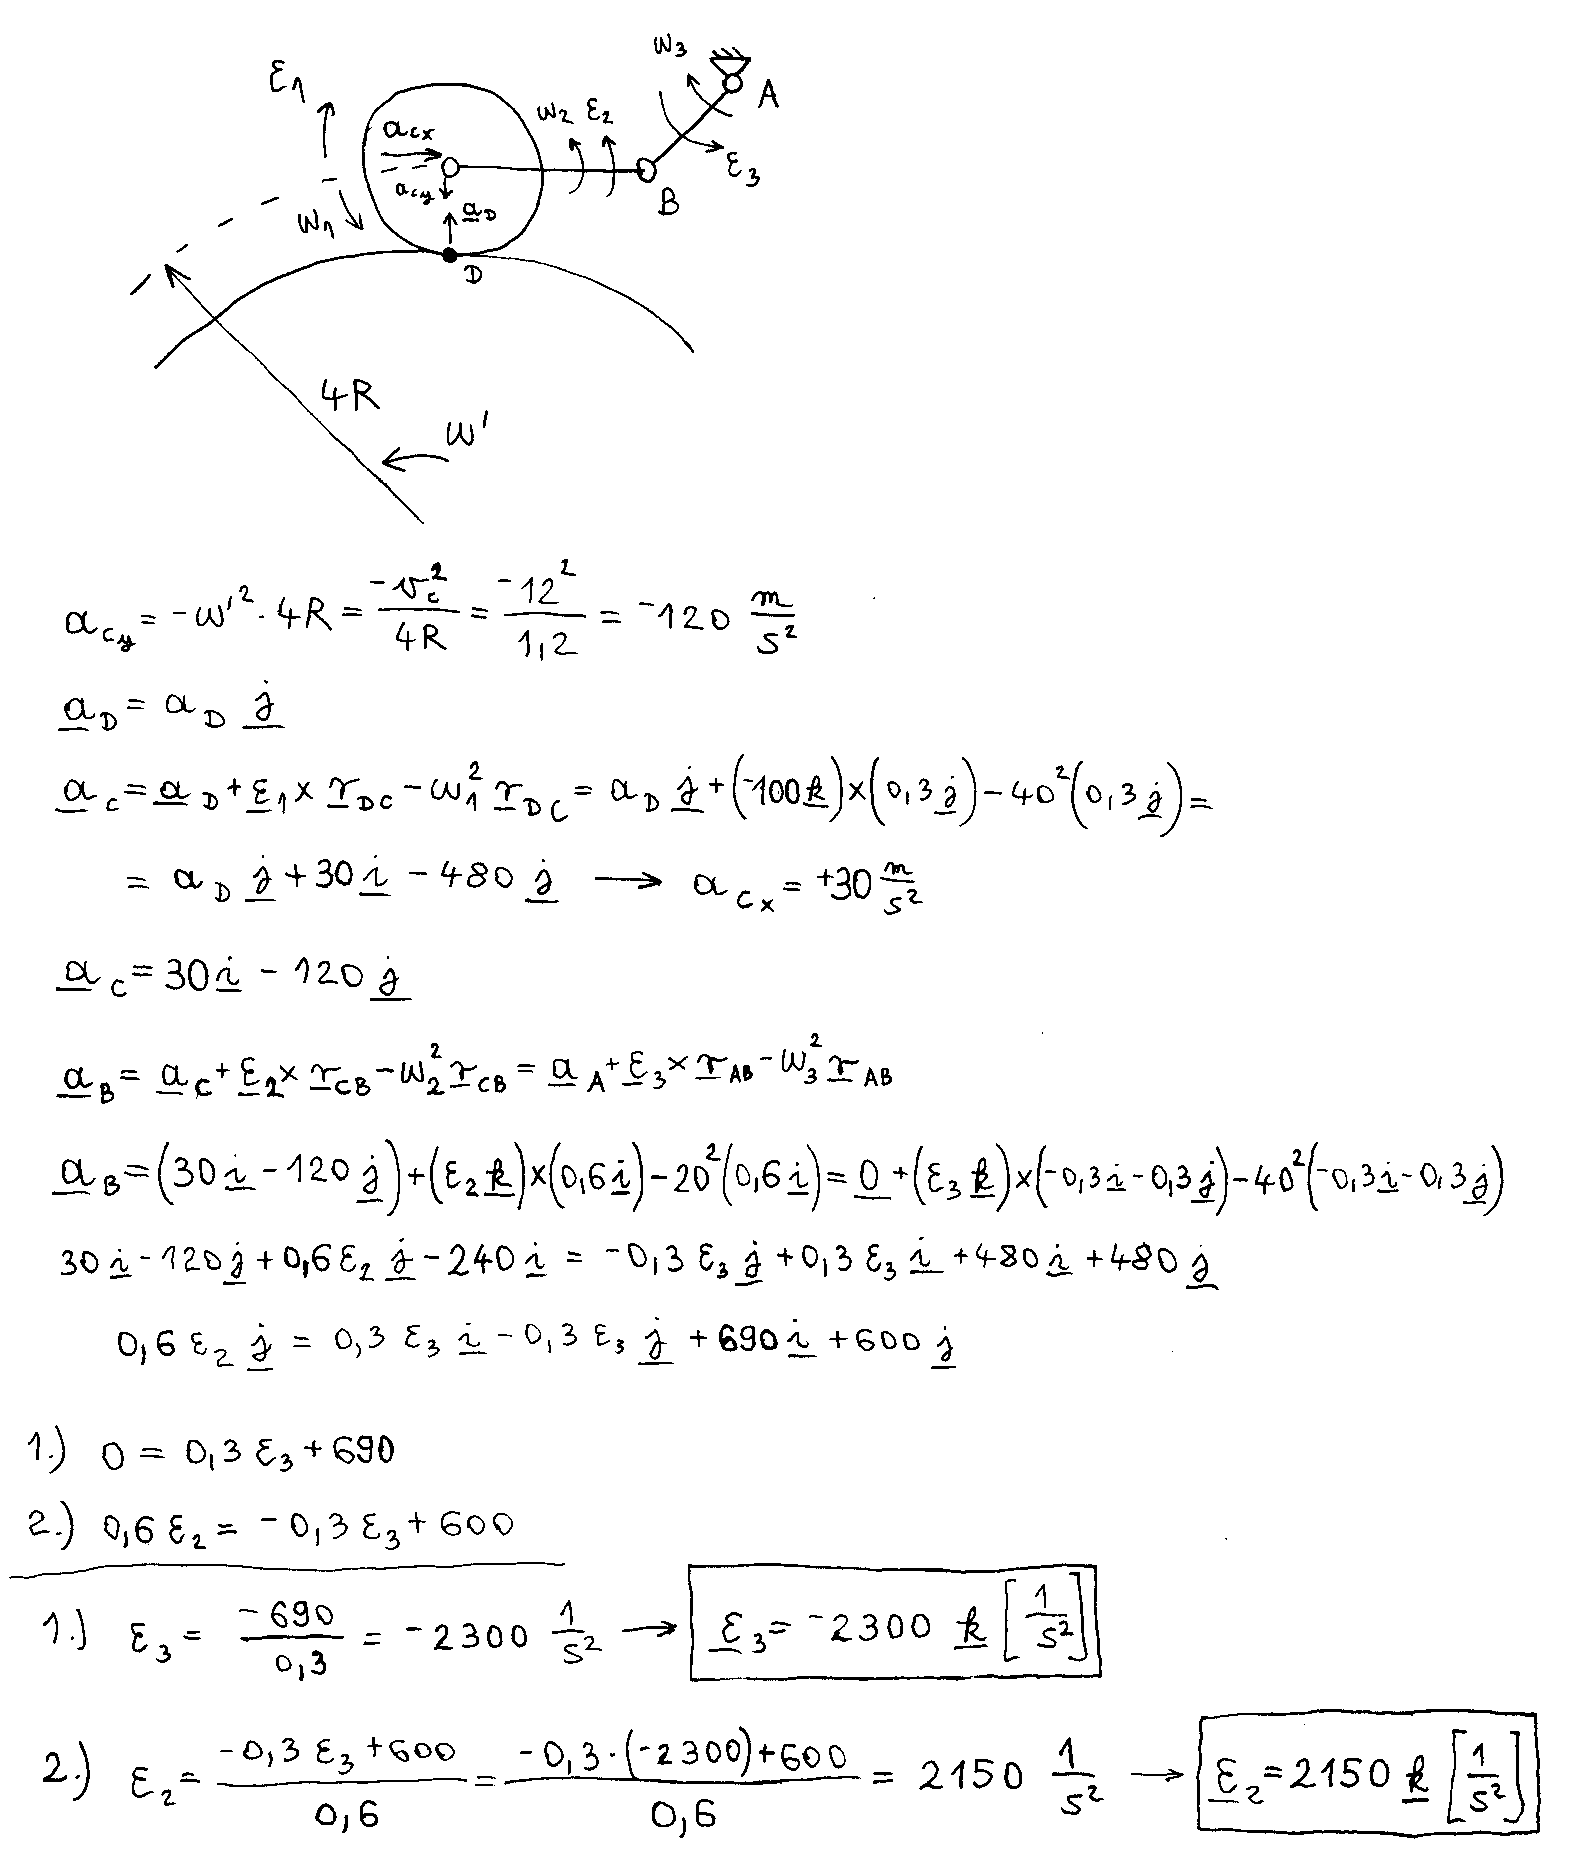 ε₁
a_cx
a_cy
a̲_D
ω₁
D
ω₂ ε₂
ω₃
A
ε₃
B
4R
ω'
a_cy = -ω'² · 4R = -v_c²/4R = -12²/1,2 = -120 m/s²
a̲_D = a_D j̲
a̲_C = a̲_D + ε̲₁ × r̲_DC - ω₁² r̲_DC = a_D j̲ + (-100k̲) × (0,3j̲) - 40²(0,3j̲) =
= a_D j̲ + 30i̲ - 480j̲ → a_Cx = +30 m/s²
a̲_C = 30i̲ - 120j̲
a̲_B = a̲_C + ε̲₂ × r̲_CB - ω₂² r̲_CB = a̲_A + ε̲₃ × r̲_AB - ω₃² r̲_AB
a̲_B = (30i̲ - 120j̲) + (ε₂k̲) × (0,6i̲) - 20²(0,6i̲) = 0̲ + (ε₃k̲) × (-0,3i̲ - 0,3j̲) - 40²(-0,3i̲ - 0,3j̲)
30i̲ - 120j̲ + 0,6ε₂j̲ - 240i̲ = -0,3ε₃j̲ + 0,3ε₃i̲ + 480i̲ + 480j̲
0,6ε₂j̲ = 0,3ε₃i̲ - 0,3ε₃j̲ + 690i̲ + 600j̲
1.) 0 = 0,3ε₃ + 690
2.) 0,6ε₂ = -0,3ε₃ + 600
1.) ε₃ = -690/0,3 = -2300 1/s² → ε̲₃ = -2300 k̲ [1/s²]
2.) ε₂ = (-0,3ε₃ + 600)/0,6 = (-0,3·(-2300) + 600)/0,6 = 2150 1/s² → ε̲₂ = 2150 k̲ [1/s²]